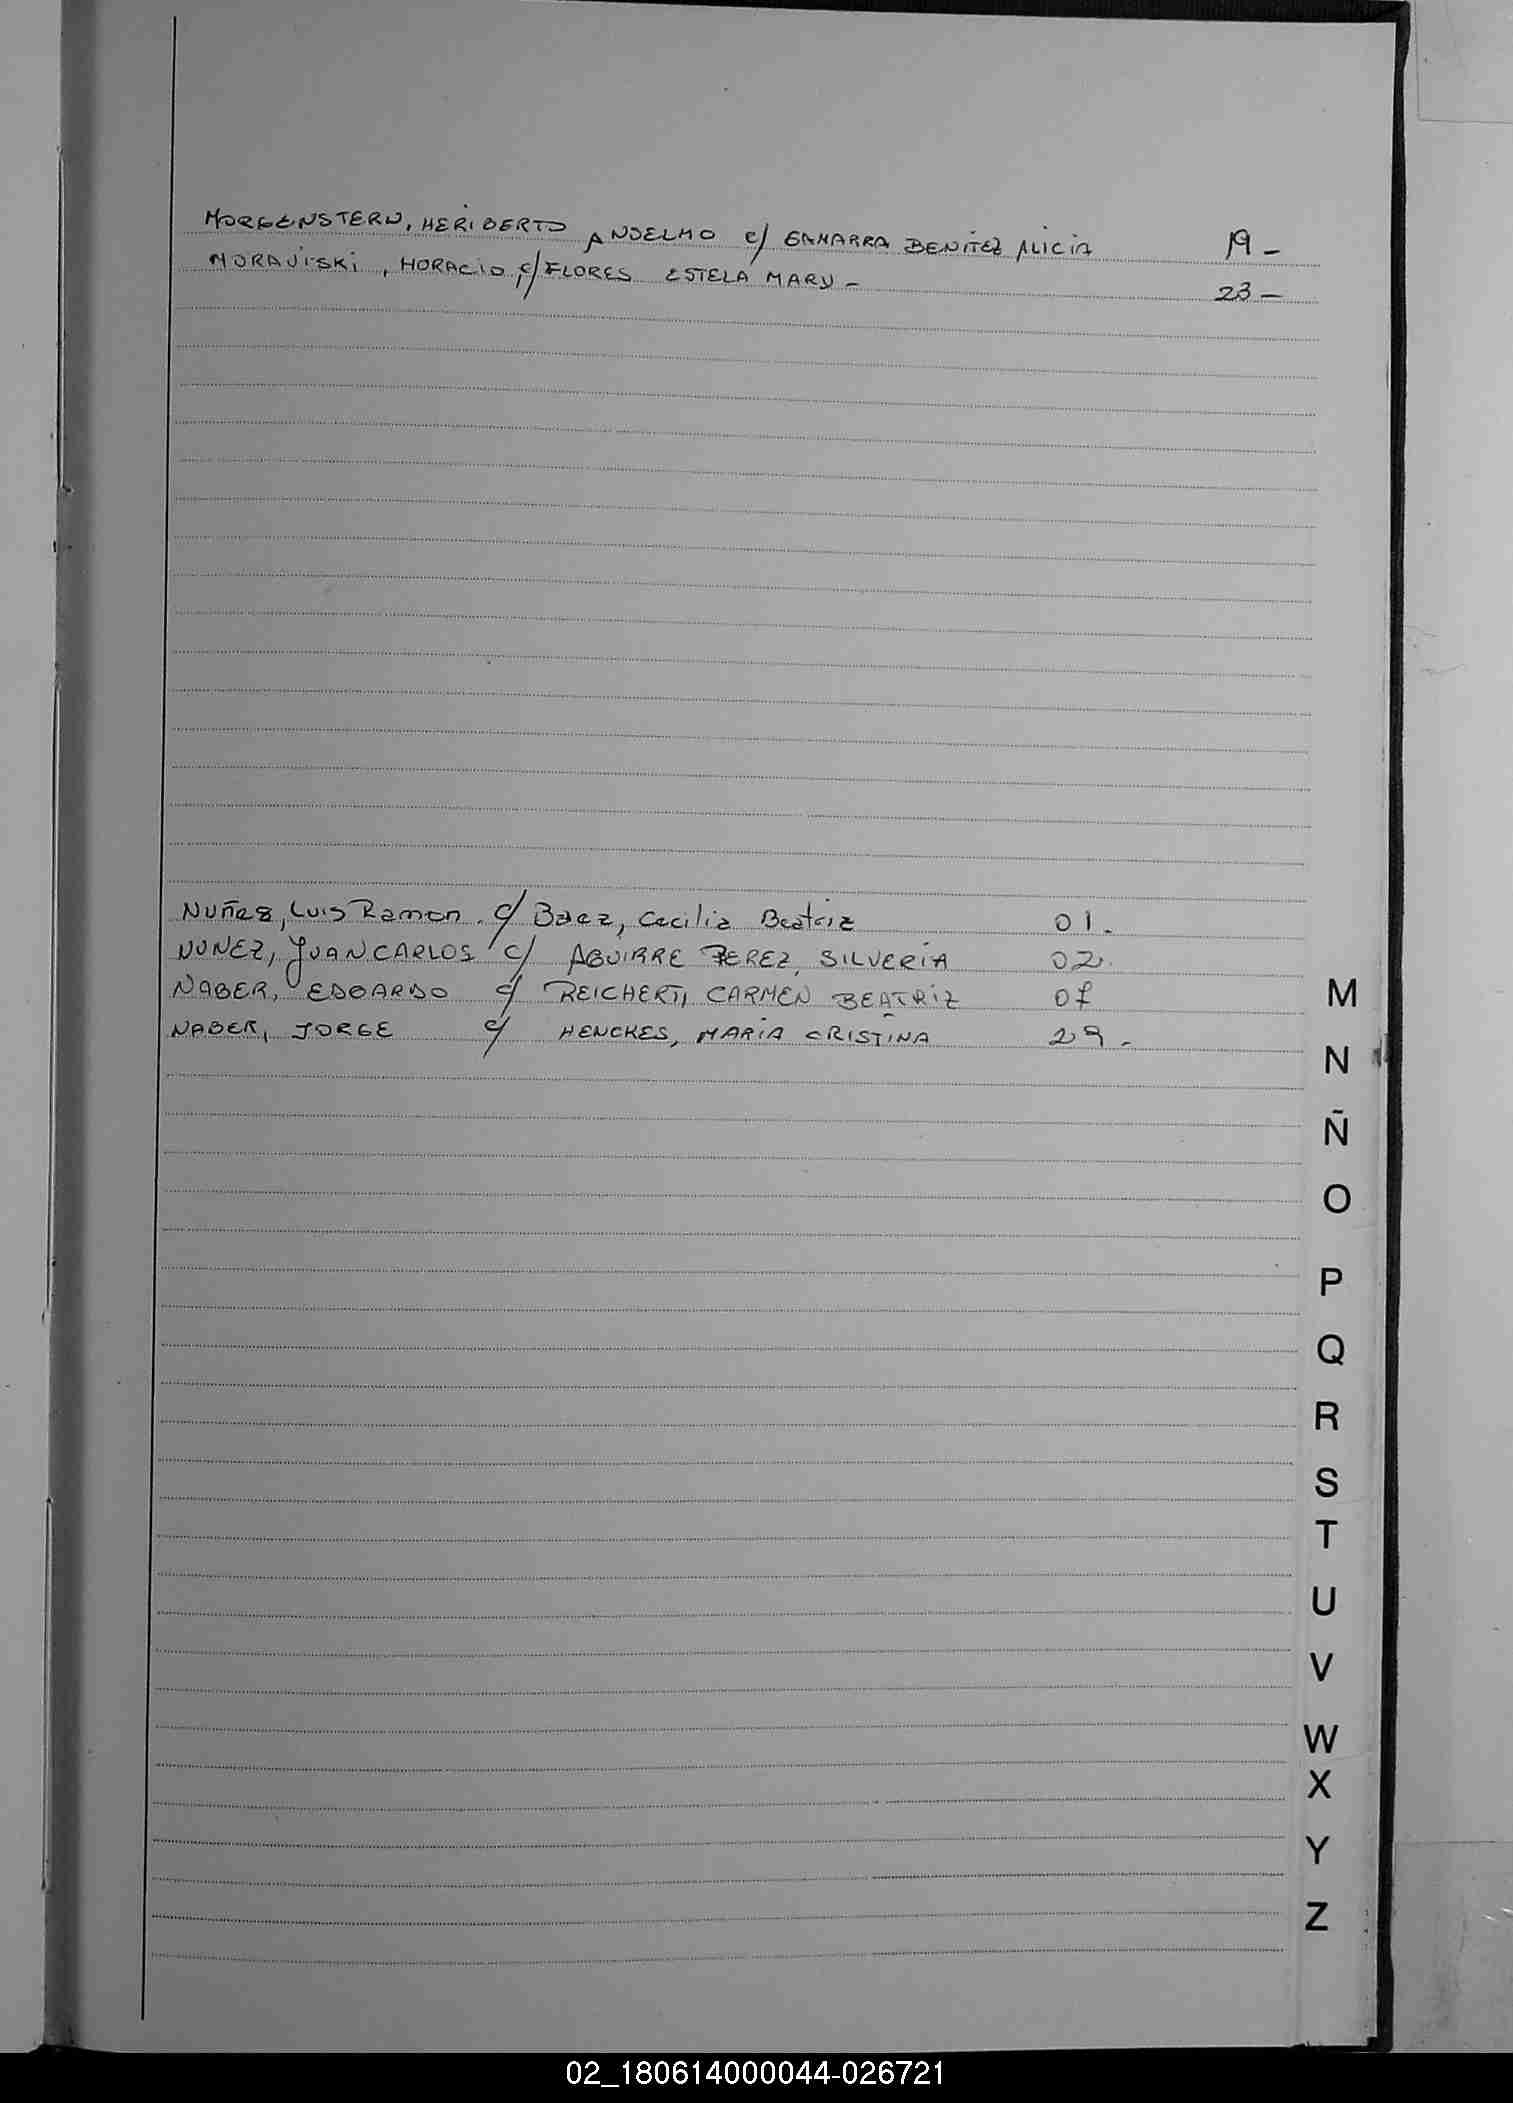 MORGENSTERN, HERIBERTO ANSELMO c/ GAMARRA BENITEZ ALICIA 19 -
MORAVISKI, HORACIO c/ FLORES ESTELA MARY - 23 -
Nuñez, Luis Ramon c/ Baez, Cecilia Beatriz 01.
NUNEZ, JUAN CARLOS c/ AGUIRRE PEREZ, SILVERIA 02.
NABER, EDGARDO c/ REICHERT, CARMEN BEATRIZ 07
NABER, JORGE c/ HENCKES, MARIA CRISTINA 29 -
M
N
Ñ
O
P
Q
R
S
T
U
V
W
X
Y
Z
02_180614000044-026721